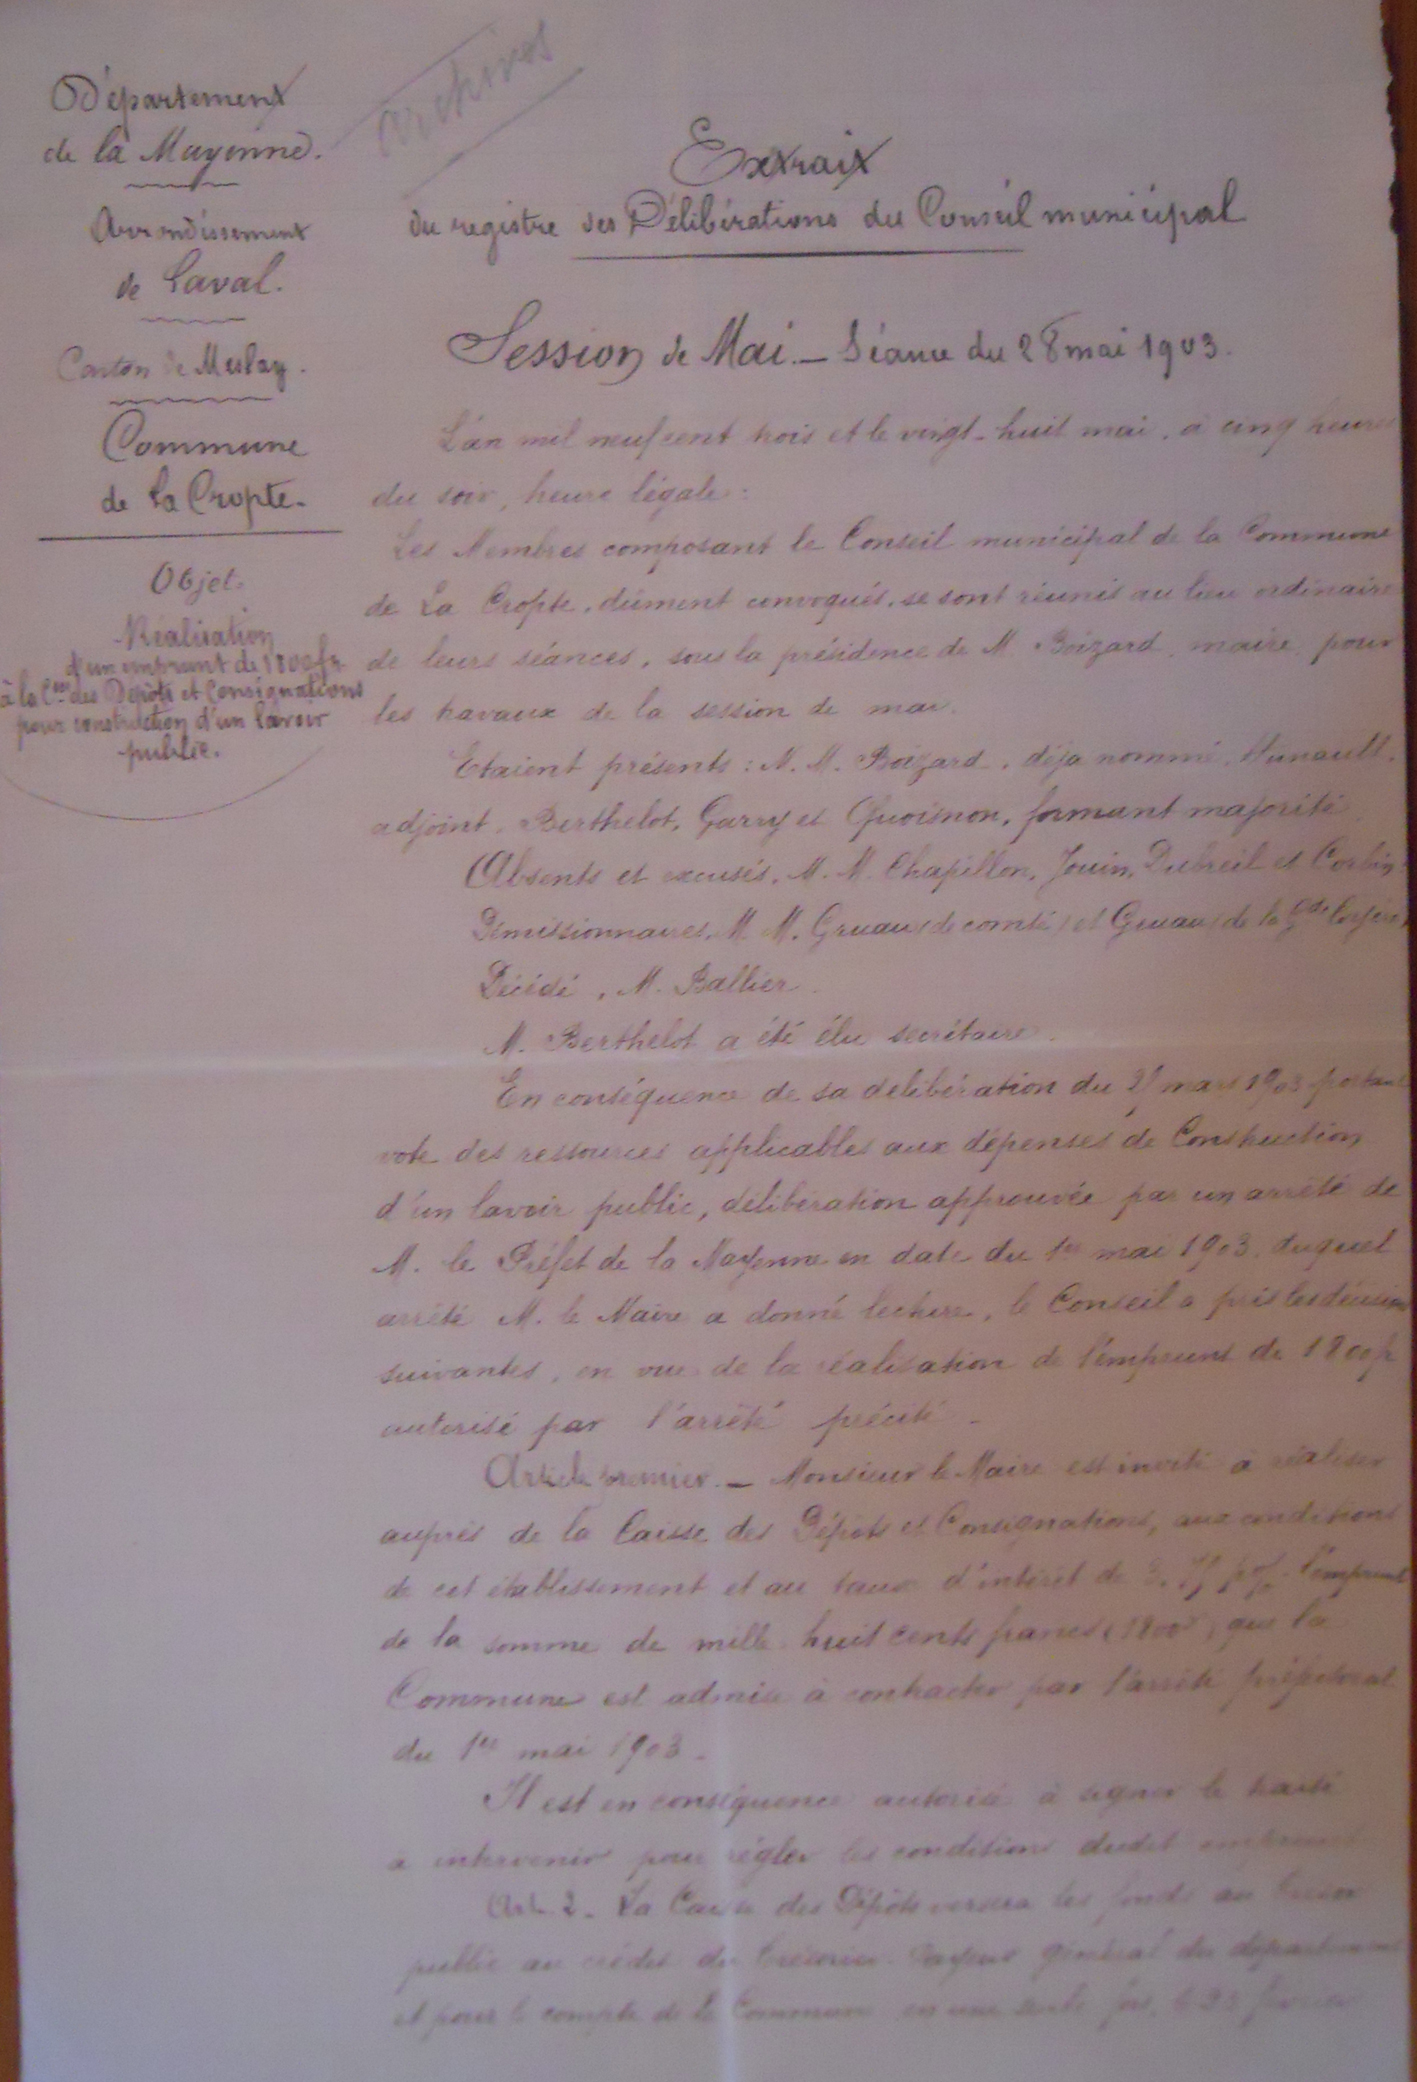 Archives
Département
de la Mayenne.
Arrondissement
de Laval.
Canton de Meslay.
Commune
de La Cropte.
Objet:
Réalisation
d'un emprunt de 1800 fr
à la Csse des Dépôts et Consignations
pour construction d'un lavoir
public.
Extrait
du registre des Délibérations du Conseil municipal
Session de Mai. — Séance du 28 mai 1903.
L'an mil neuf cent trois et le vingt-huit mai, à cinq heures
du soir, heure légale:
Les Membres composant le Conseil municipal de la Commune
de La Cropte, dûment convoqués, se sont réunis au lieu ordinaire
de leurs séances, sous la présidence de M. Boizard, maire, pour
les travaux de la session de mai.
Etaient présents: M. M. Boizard, déja nommé, Hunault,
adjoint, Berthelot, Garry et Quoisnon, formant majorité
Absents et excusés, M. M. Chapillon, Jouin, Dubreil et Corbin.
Démissionnaires, M. M. Gruau (de comté) et Gruau (de la Gde
Décédé, M. Ballier.
M. Berthelot a été élu secrétaire.
En conséquence de sa délibération du mars 1903 portant
vote des ressources applicables aux dépenses de Construction
d'un lavoir public, délibération approuvée par un arrêté de
M. le Préfet de la Mayenne en date du 1er mai 1903, duquel
arrêté M. le Maire a donné lecture, le Conseil a pris les décisions
suivantes, en vue de la réalisation de l'emprunt de 1800f
autorisé par l'arrêté précité.
Article premier. — Monsieur le Maire est invité à réaliser
auprès de la Caisse des Dépôts et Consignations, aux conditions
de cet établissement et au taux d'intérêt de l'emprunt
de la somme de mille huit cents francs (1800f) que la
Commune est admise à contracter par l'arrêté préfectoral
du 1er mai 1903.
Il est en conséquence autorisé à signer le traité
à intervenir pour régler les conditions dudit emprunt
Art. 2. La Caisse des Dépôts versera les fonds au Trésor
public au crédit du Trésorier-Payeur général du département
et pour le compte de la Commune en une seule fois, le février